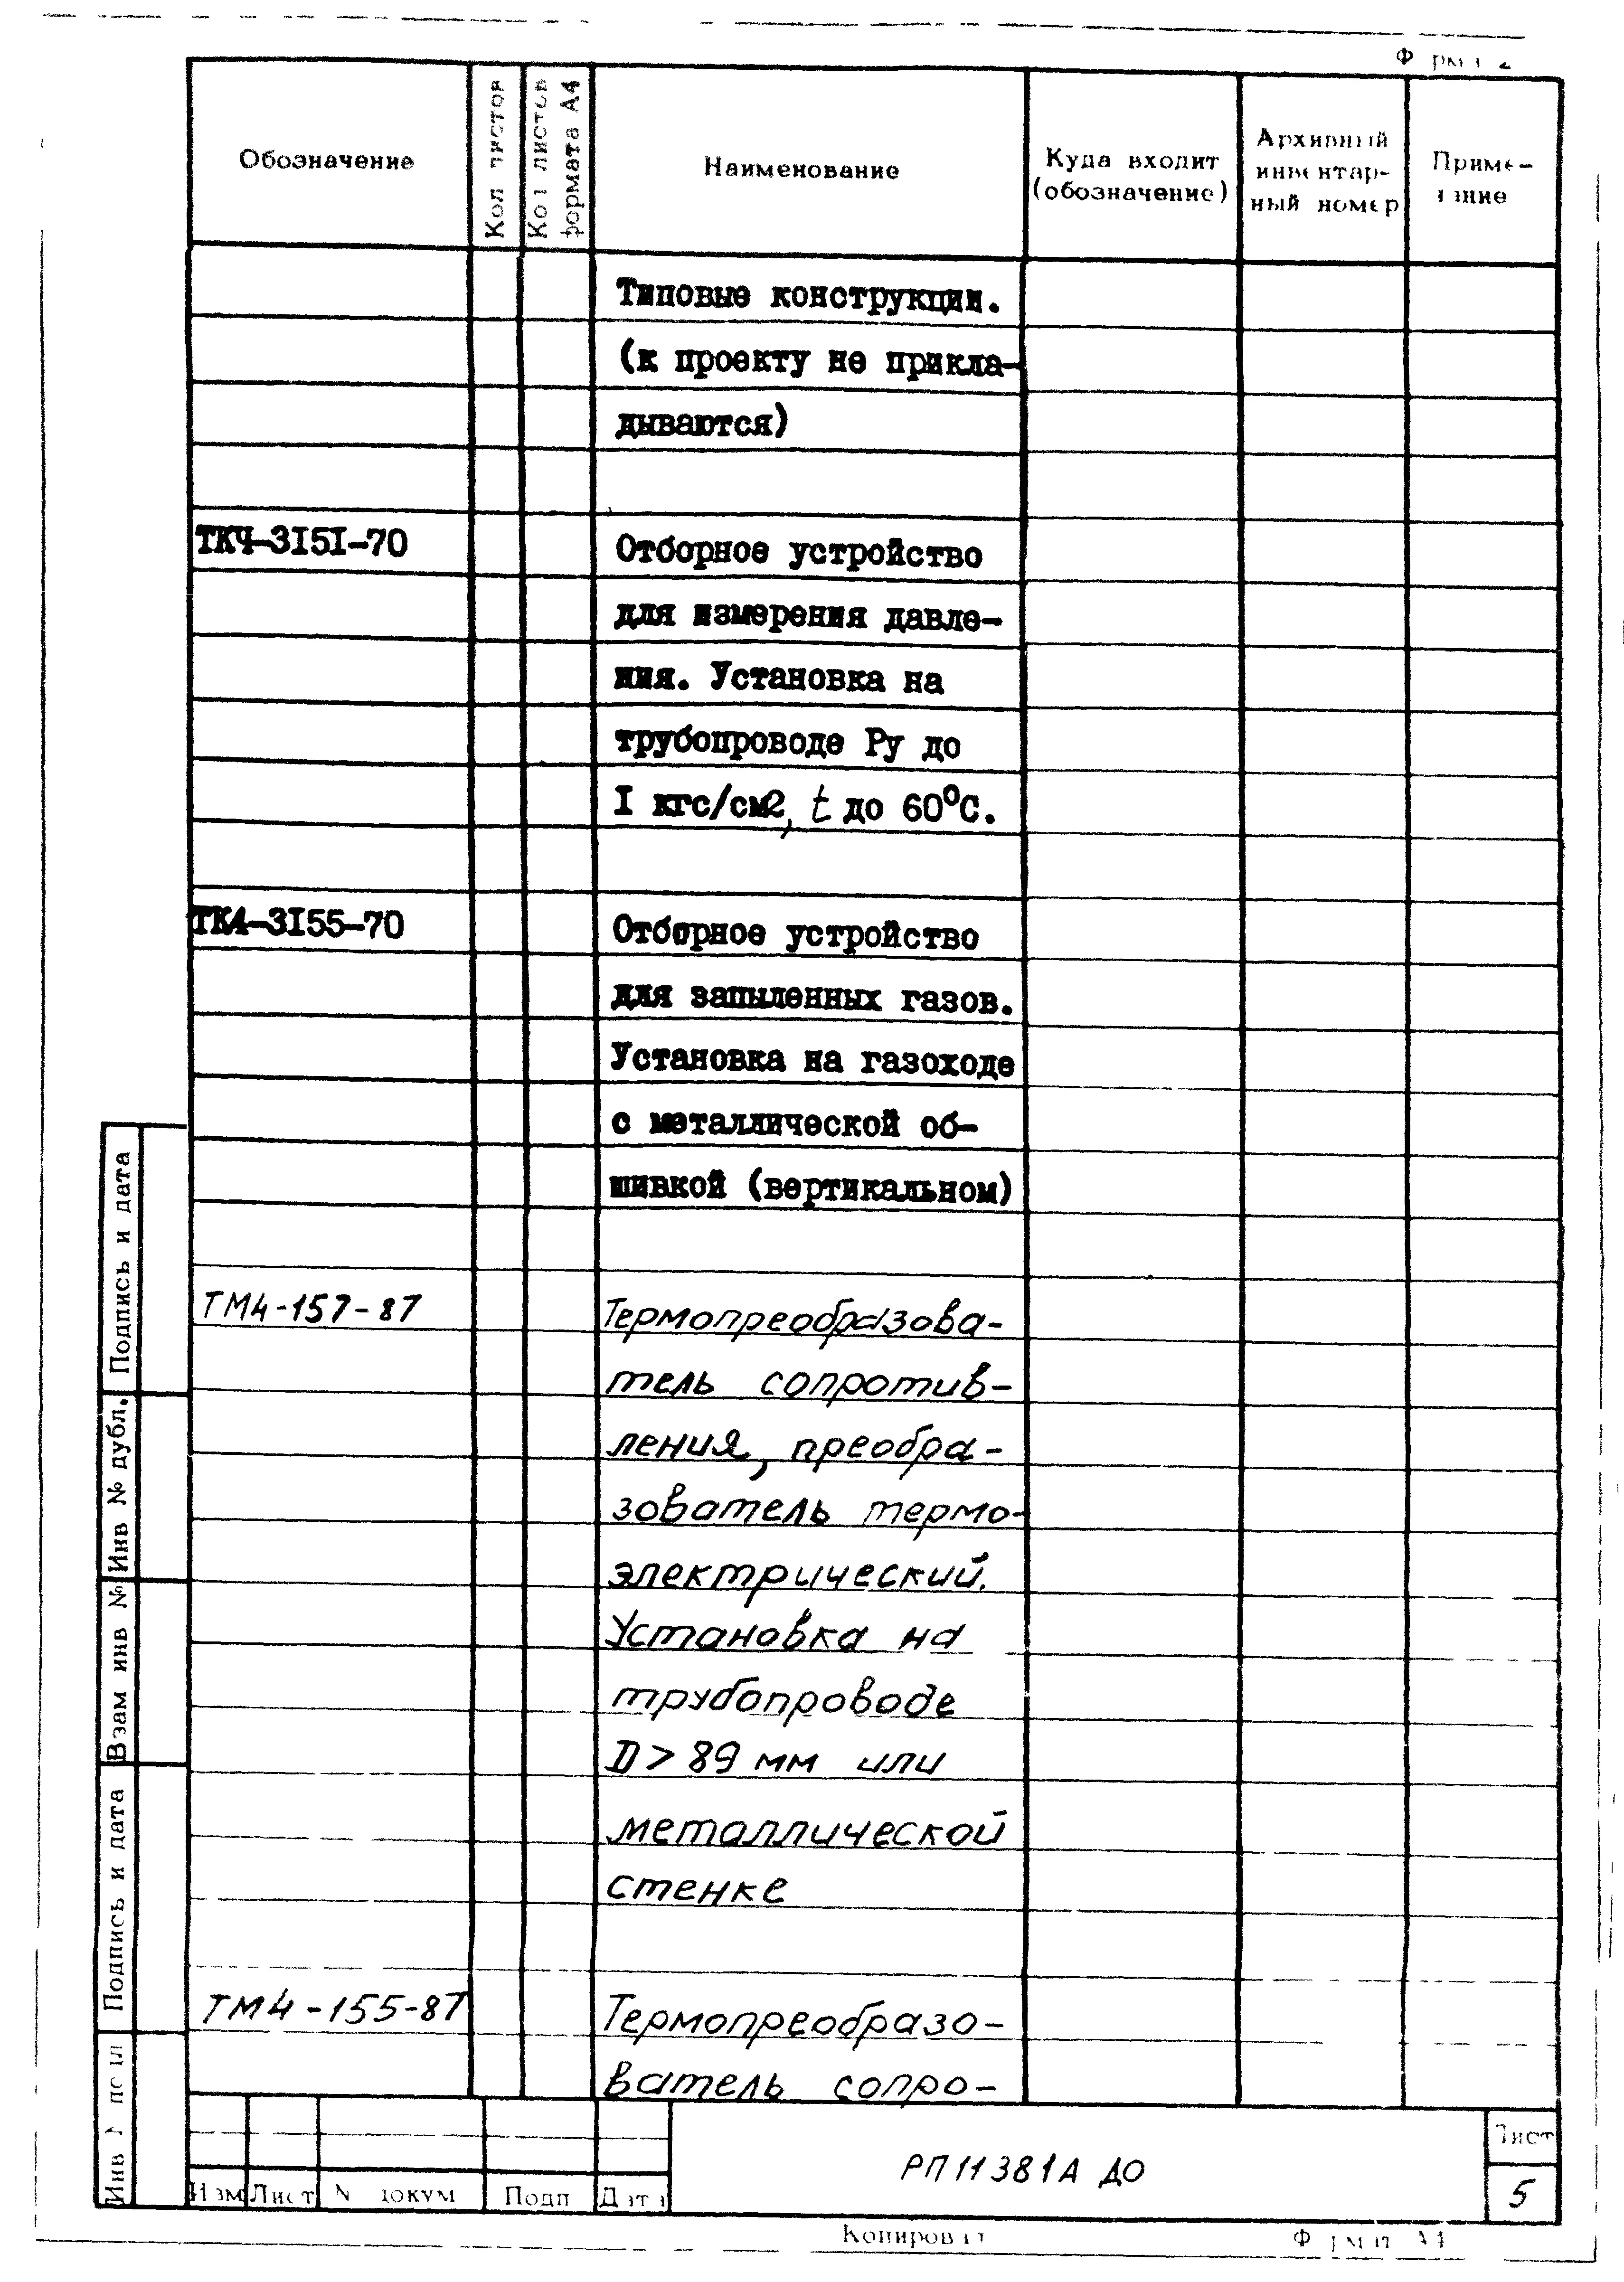 Обозначение
Кол листов
Кол листов
формата А4
Наименование
Куда входит
(обозначение)
Архивный
инвентар-
ный номер
Приме-
чание
Типовые конструкции.
(к проекту не прикла-
дываются)
ТК4-3151-70 Отборное устройство
для измерения давле-
ния. Установка на
трубопроводе Ру до
I кгс/см2, t до 60°С.
ТК4-3155-70 Отборное устройство
для запыленных газов.
Установка на газоходе
с металлической об-
шивкой (вертикальном)
ТМ4-157-87 Термопреобразова-
тель сопротив-
ления, преобра-
зователь термо-
электрический.
Установка на
трубопроводе
D > 89 мм или
металлической
стенке
ТМ4-155-87 Термопреобразо-
ватель сопро-
Подпись и дата
Инв № дубл.
Взам инв №
Подпись и дата
Инв
Изм Лист N докум Подп Дата
РП11381А ДО
Лист
5
Копировал
Формат А4